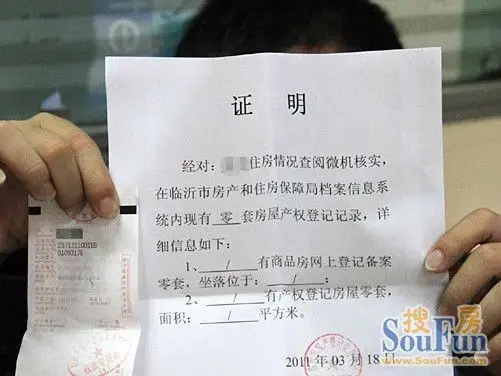 证 明
经对: 住房情况查阅微机核实,
在临沂市房产和住房保障局档案信息系
统内现有 零 套房屋产权登记记录,详
细信息如下:
1、 / 有商品房网上登记备案
零套,坐落位于: / ;
2、 / 有产权登记房屋零套,
面积: / 平方米。
2011 年 03 月 18 日
237131100110
01093176
搜房
SouFun
www.SouFun.com